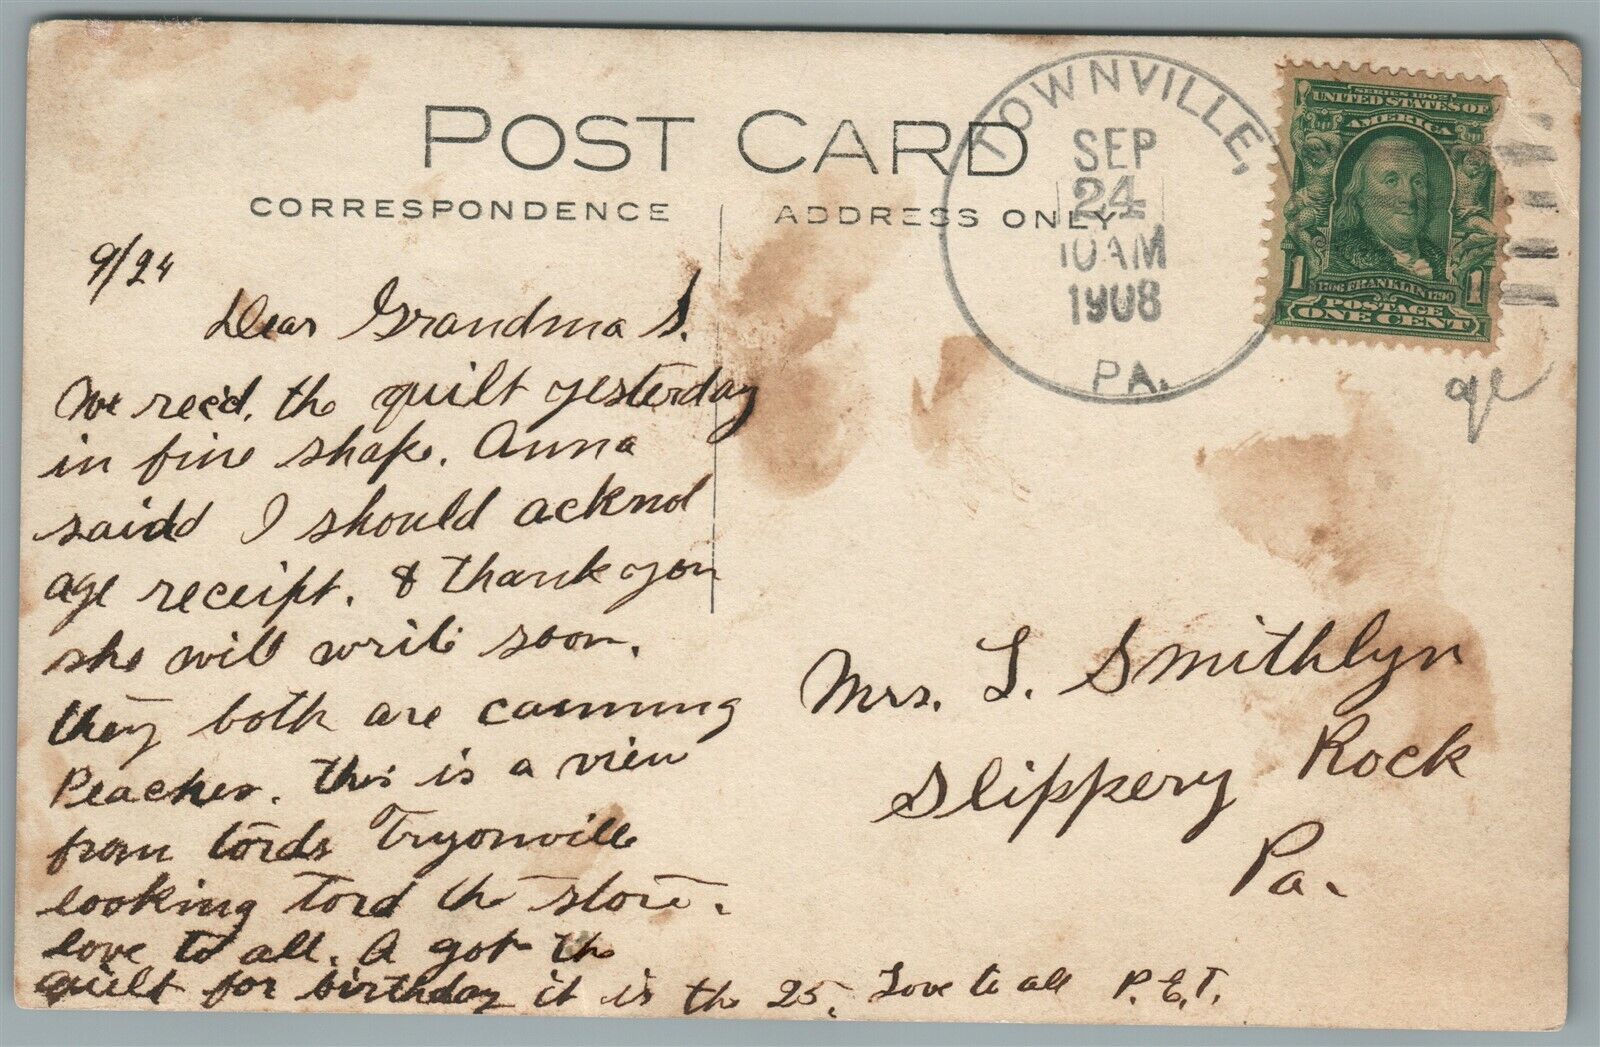 POST CARD
CORRESPONDENCE
ADDRESS ONLY
TOWNVILLE,
SEP
24
10 AM
1908
PA.
SERIES 1902
UNITED STATES OF
AMERICA
1706 FRANKLIN 1790
1 1
POSTAGE
ONE CENT
9/24
Dear Grandma S.
We rec'd. the quilt yesterday
in fine shape. Anna
said I should acknol
age receipt. & thank you
she will write soon.
they both are canning
Peaches. this is a view
from tords Tryonville
looking tord the store.
love to all. A got the
quilt for birthday it is the 25. Love to all P.E.T.
Mrs. L. Smithlyn
Slippery Rock
Pa.